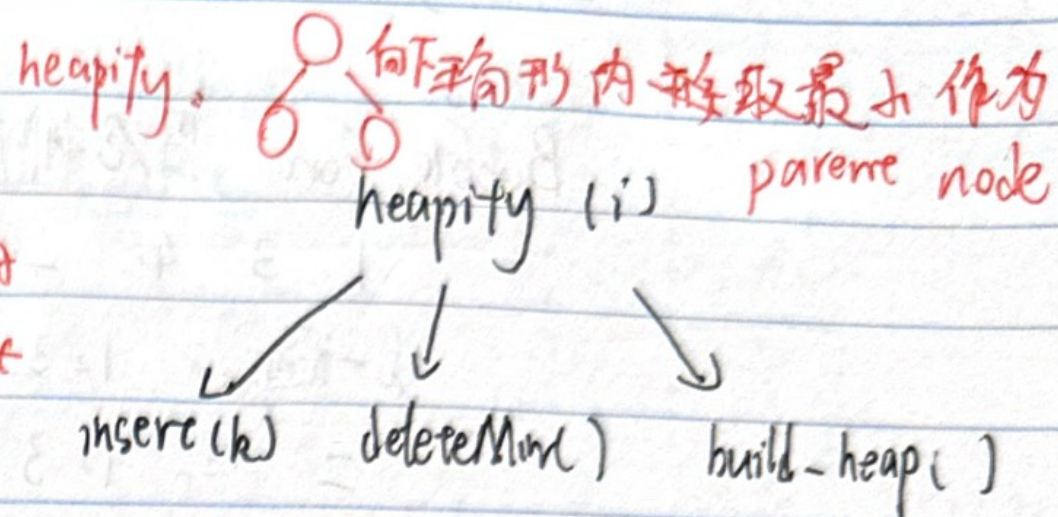 heapify. 向下三角形内 取最小作为
parent node
heapify (i)
insert(k) deleteMin() build-heap( )